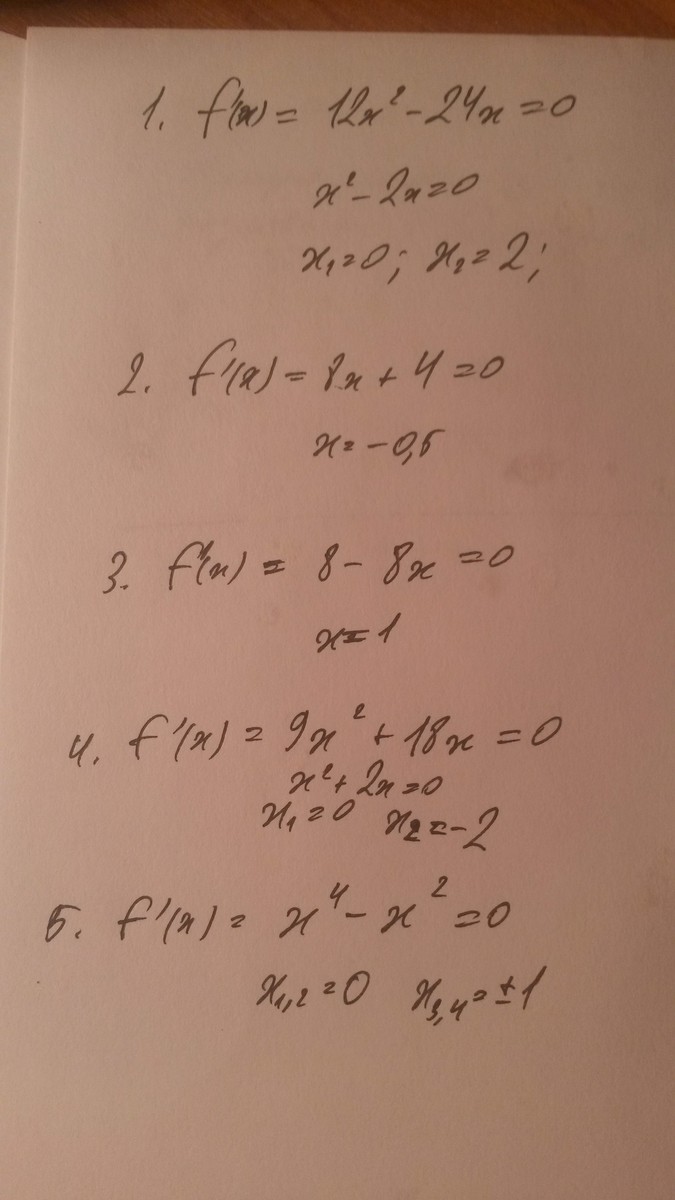 1. f'(x) = 12x² - 24x = 0
x² - 2x = 0
x₁ = 0; x₂ = 2;
2. f'(x) = 8x + 4 = 0
x = -0,5
3. f'(x) = 8 - 8x = 0
x = 1
4. f'(x) = 9x² + 18x = 0
x² + 2x = 0
x₁ = 0 x₂ = -2
5. f'(x) = x⁴ - x² = 0
x₁,₂ = 0 x₃,₄ = ±1